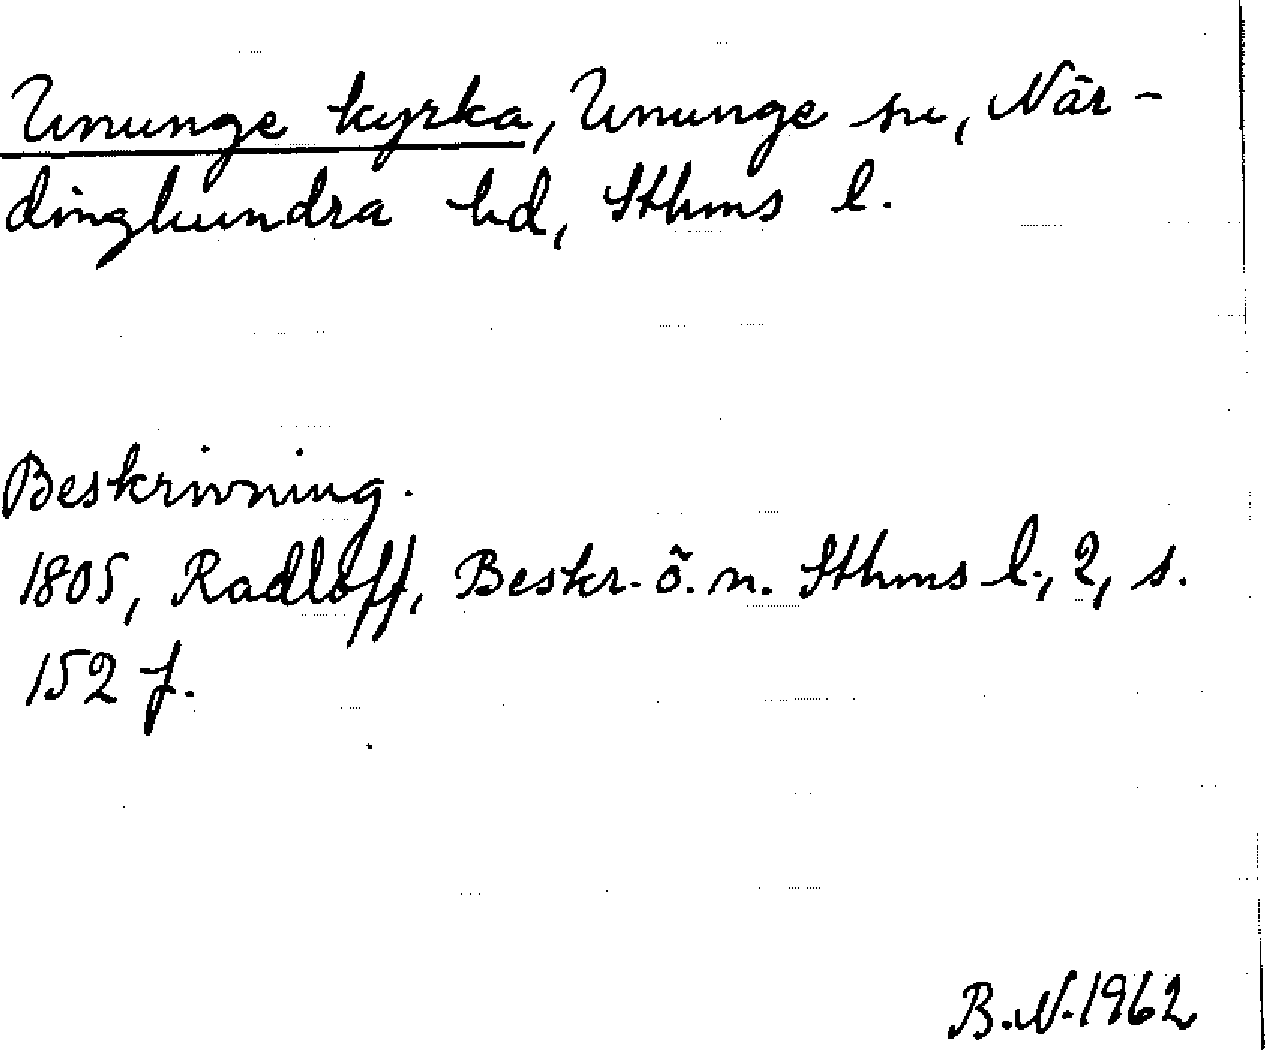 Ununge kyrka, Ununge sn, När-
dinghundra hd, Sthms l.
Beskrivning.
1805, Radloff, Beskr. ö. n. Sthms l., 2, s.
152 f.
B.N. 1962